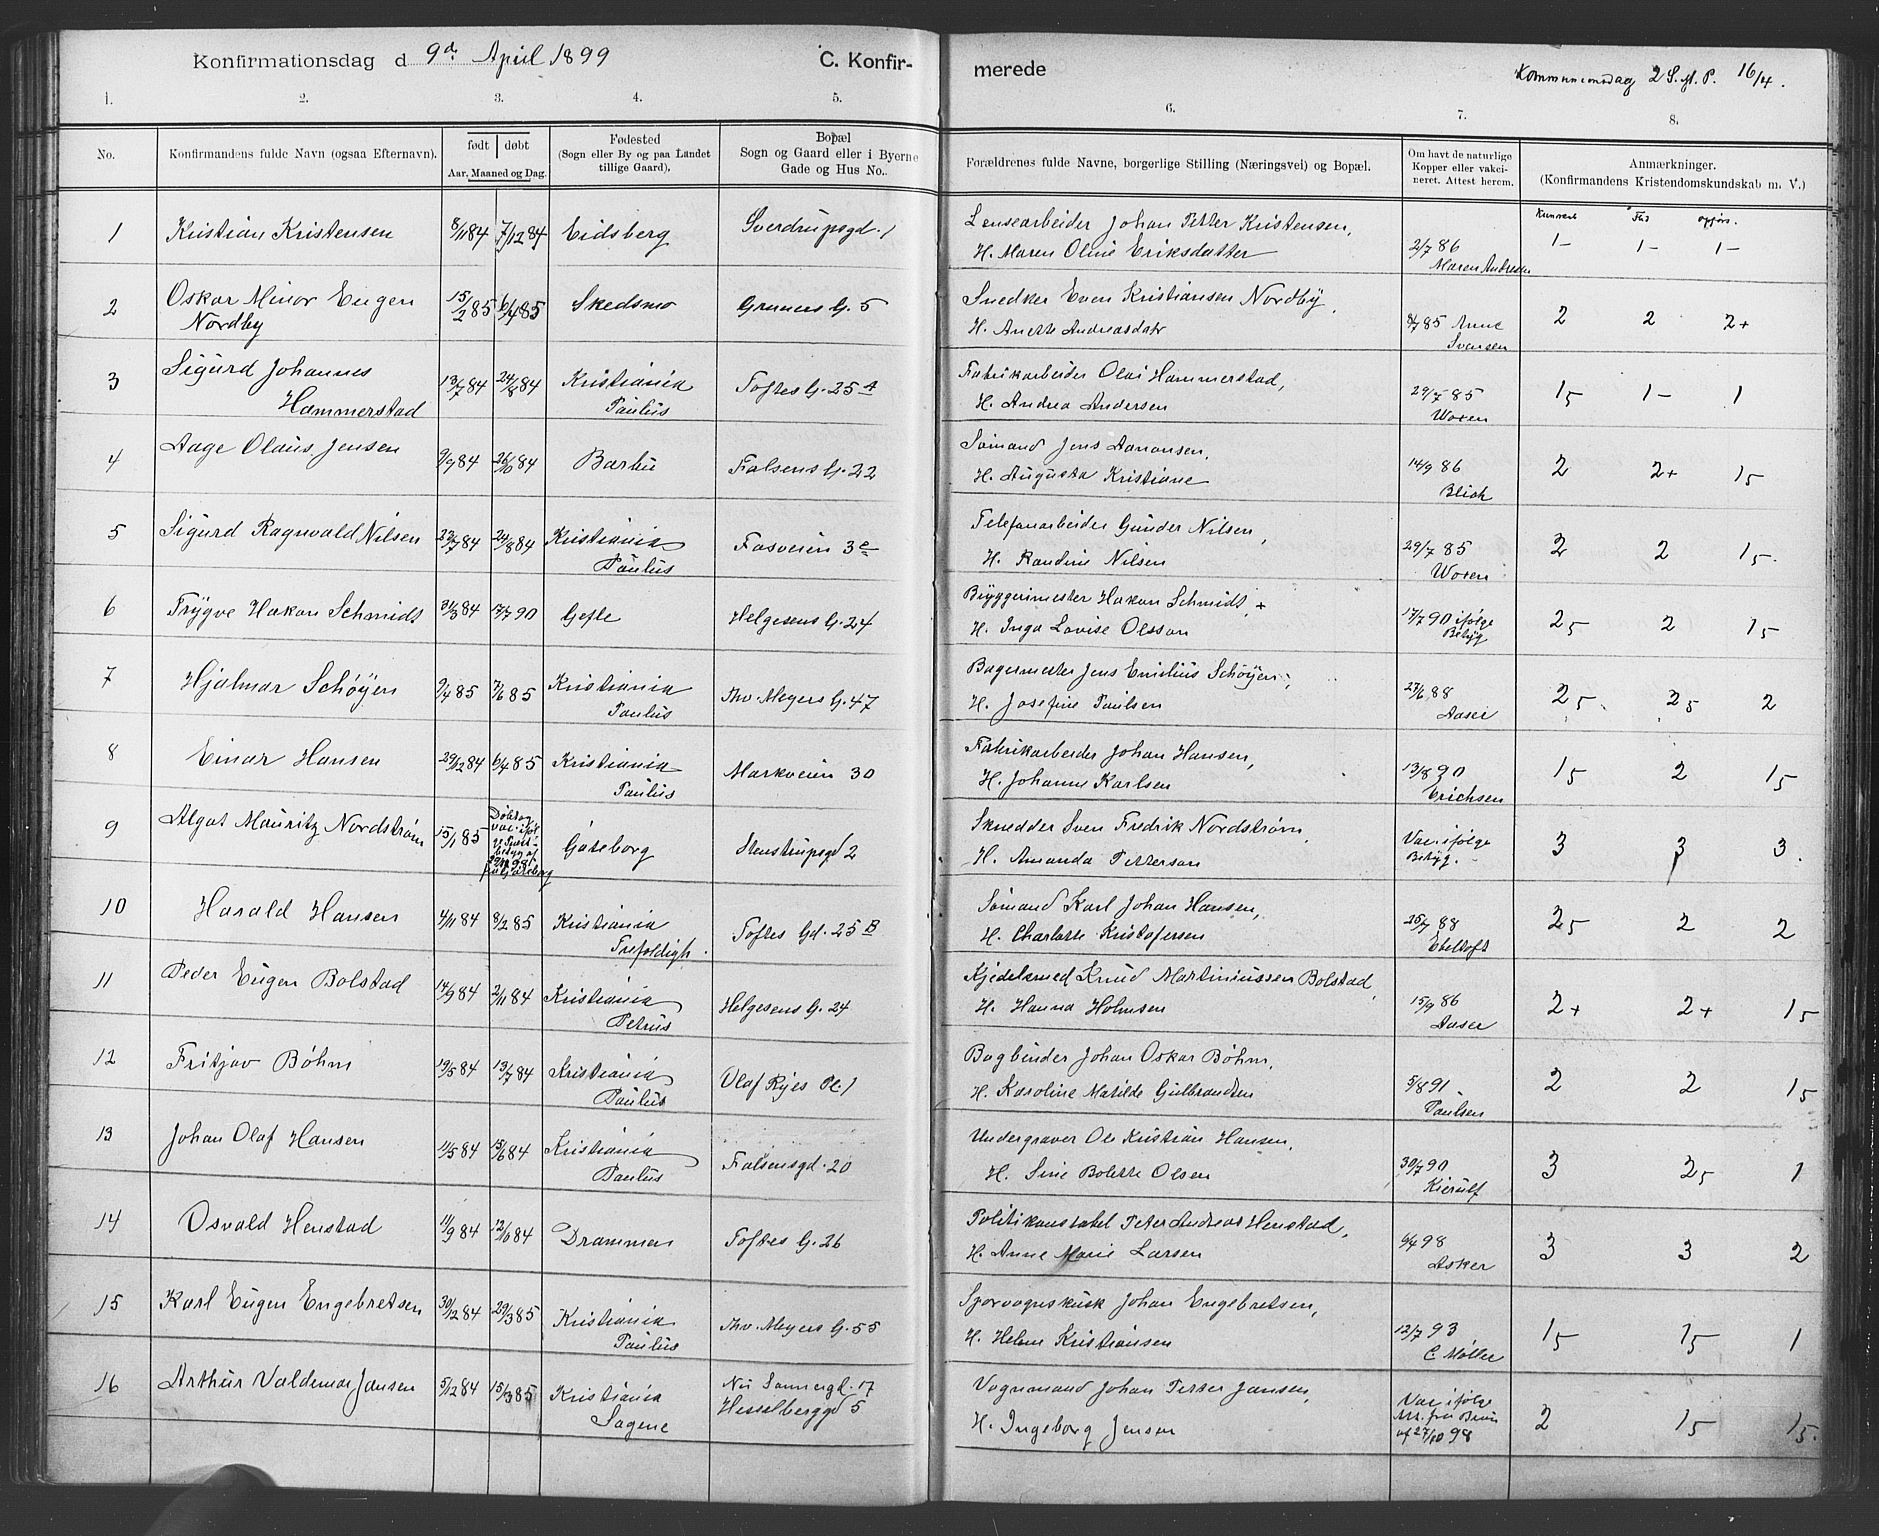 Konfirmationsdag d 9d. April 1899
C. Konfir-
1. 2. 3. 4. 5.
No.
Konfirmandens fulde Navn (ogsaa Efternavn).
født døbt
Aar, Maaned og Dag.
Fødested
(Sogn eller By og paa Landet
tillige Gaard).
Bopæl
Sogn og Gaard eller i Byerne
Gade og Hus No.
1 Kristian Kristensen 8/11 84 7/12 84 Eidsberg Sverdrupsgd. 1
2 Oskar Minor Eugen 15/2 85 6/4 85 Skedsmo Gruners G. 5
Nordby
3 Sigurd Johannes 13/7 84 24/8 84 Kristiania Toftes G. 25 A
Hammerstad Paulus
4 Aage Olaus Jensen 9/9 84 26/10 84 Barbu Falsens G. 22
5 Sigurd Ragnvald Nilsen 23/7 84 24/8 84 Kristiania Fosveien 3 c
Paulus
6 Trygve Hakon Schmidt 31/3 84 17/7 90 Gefle Helgesens G. 24
7 Hjalmar Schøyen 9/4 85 7/6 85 Kristiania Thv. Meyers G. 47
Paulus
8 Einar Hansen 29/12 84 6/4 85 Kristiania Markveien 30
Paulus
9 Algot Mauritz Nordstrøm 15/1 85 Gøteborg Stenstrupsgd 2
10 Harald Hansen 4/11 84 8/2 85 Kristiania Toftes Gd. 25 B
Trefoldigh.
11 Peder Eugen Bolstad 14/9 84 2/11 84 Kristiania Helgesens G. 24
Petrus
12 Fritjov Bøhm 19/5 84 13/7 84 Kristiania Olaf Ryes Pl. 1
Paulus
13 Johan Olaf Hansen 11/5 84 15/6 84 Kristiania Falsensgd. 20
Paulus
14 Osvald Henstad 11/9 84 12/10 84 Drammen Toftes G. 26
15 Karl Eugen Engebretsen 30/12 84 29/3 85 Kristiania Thv. Meyers G. 55
Paulus
16 Arthur Valdemar Jansen 5/12 84 15/3 85 Kristiania Nu Sannergd. 17
Sagene Hesselberggd 5
merede
Kommunionsdag 2 S. M. P. 16/4.
6. 7. 8.
Forældrenes fulde Navne, borgerlige Stilling (Næringsvei) og Bopæl.
Om havt de naturlige
Kopper eller vakci-
neret. Attest herem.
Anmærkninger.
(Konfirmandens Kristendomskundskab m. V.)
Kunnsk. Flid opførs.
Lensearbeider Johan Petter Kristensen, 1- 1- 1-
H. Maren Oline Eriksdatter 2/7 86
Maren Andresen
Snedker Even Kristiansen Nordby, 2 2 2+
H. Anette Andreasdatr 8/7 85 Anne
Svensen
Fabrikarbeider Olai Hammerstad, 15 1- 1
H. Andrea Andersen 29/7 85
Woxen
Sømand Jens Aanonsen, 2 2+ 15
H. Augusta Kristiane 14/9 86
Blich
Telefonarbeider Gunder Nilsen, 2 2 15.
H. Randine Nilsen 29/7 85
Woxen
Bryggerimester Hakon Schmidt + 25 2 15
H. Inga Lovise Olsson 17/7 90 ifølge
Betyg
Bagermester Jens Emilius Schøyen, 25 25 2
H. Josefine Paulsen 27/6 88
Aaser
Fabrikarbeider Johan Hansen, 15 2 15
H. Johanne Karlsen 13/8 90
Erichsen
Skredder Sven Fredrik Nordstrøm, 3 3 3.
H. Amanda Petterson Vac. ifølge
Betyg.
Sømand Karl Johan Hansen, 25 2 2
H. Charlotte Kristofersen 25/7 88
Ebeltoft
Kjedelsmed Knud Martiniussen Bolstad, 2+ 2+ 15
H. Hanna Holmsen 15/9 86
Aaser
Bogbinder Johan Oskar Bøhm, 2 2 15
H. Karoline Matilde Gulbrandsen 5/8 91
Paulsen
Undergraver Ole Kristian Hansen, 3 25 1
H. Sine Bolette Olsen 30/7 90
Kierulf
Politikonstabel Peter Andreas Henstad, 3 3 2
H. Anne Marie Larsen 6/4 98
Asker
Sporvognskusk Johan Engebretsen, 15 15 1
H. Helene Kristiansen 12/7 93
C. Møller
Vognmand Johan Petter Jansen, 2 15 15.
H. Ingeborg Jensen Vac. ifølge
Att. fra Bruun
af 27/10 98